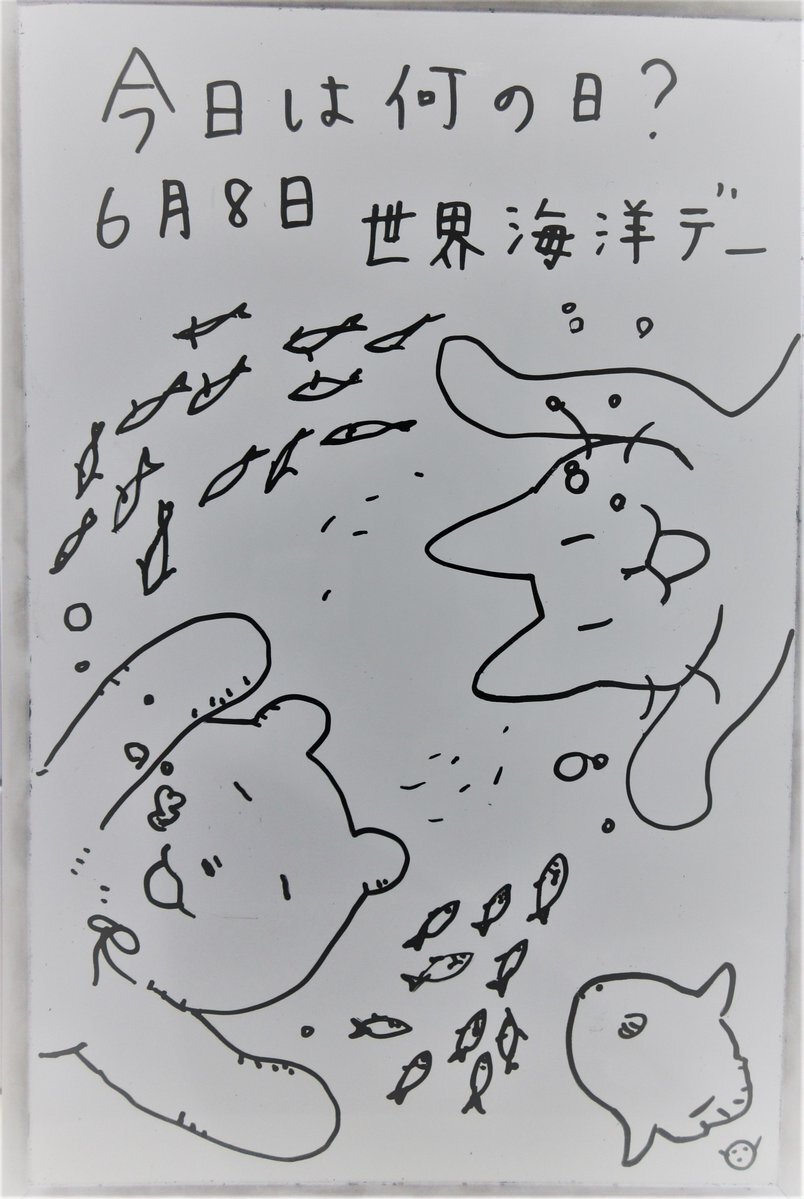 今日は何の日?
6月8日 世界海洋デー